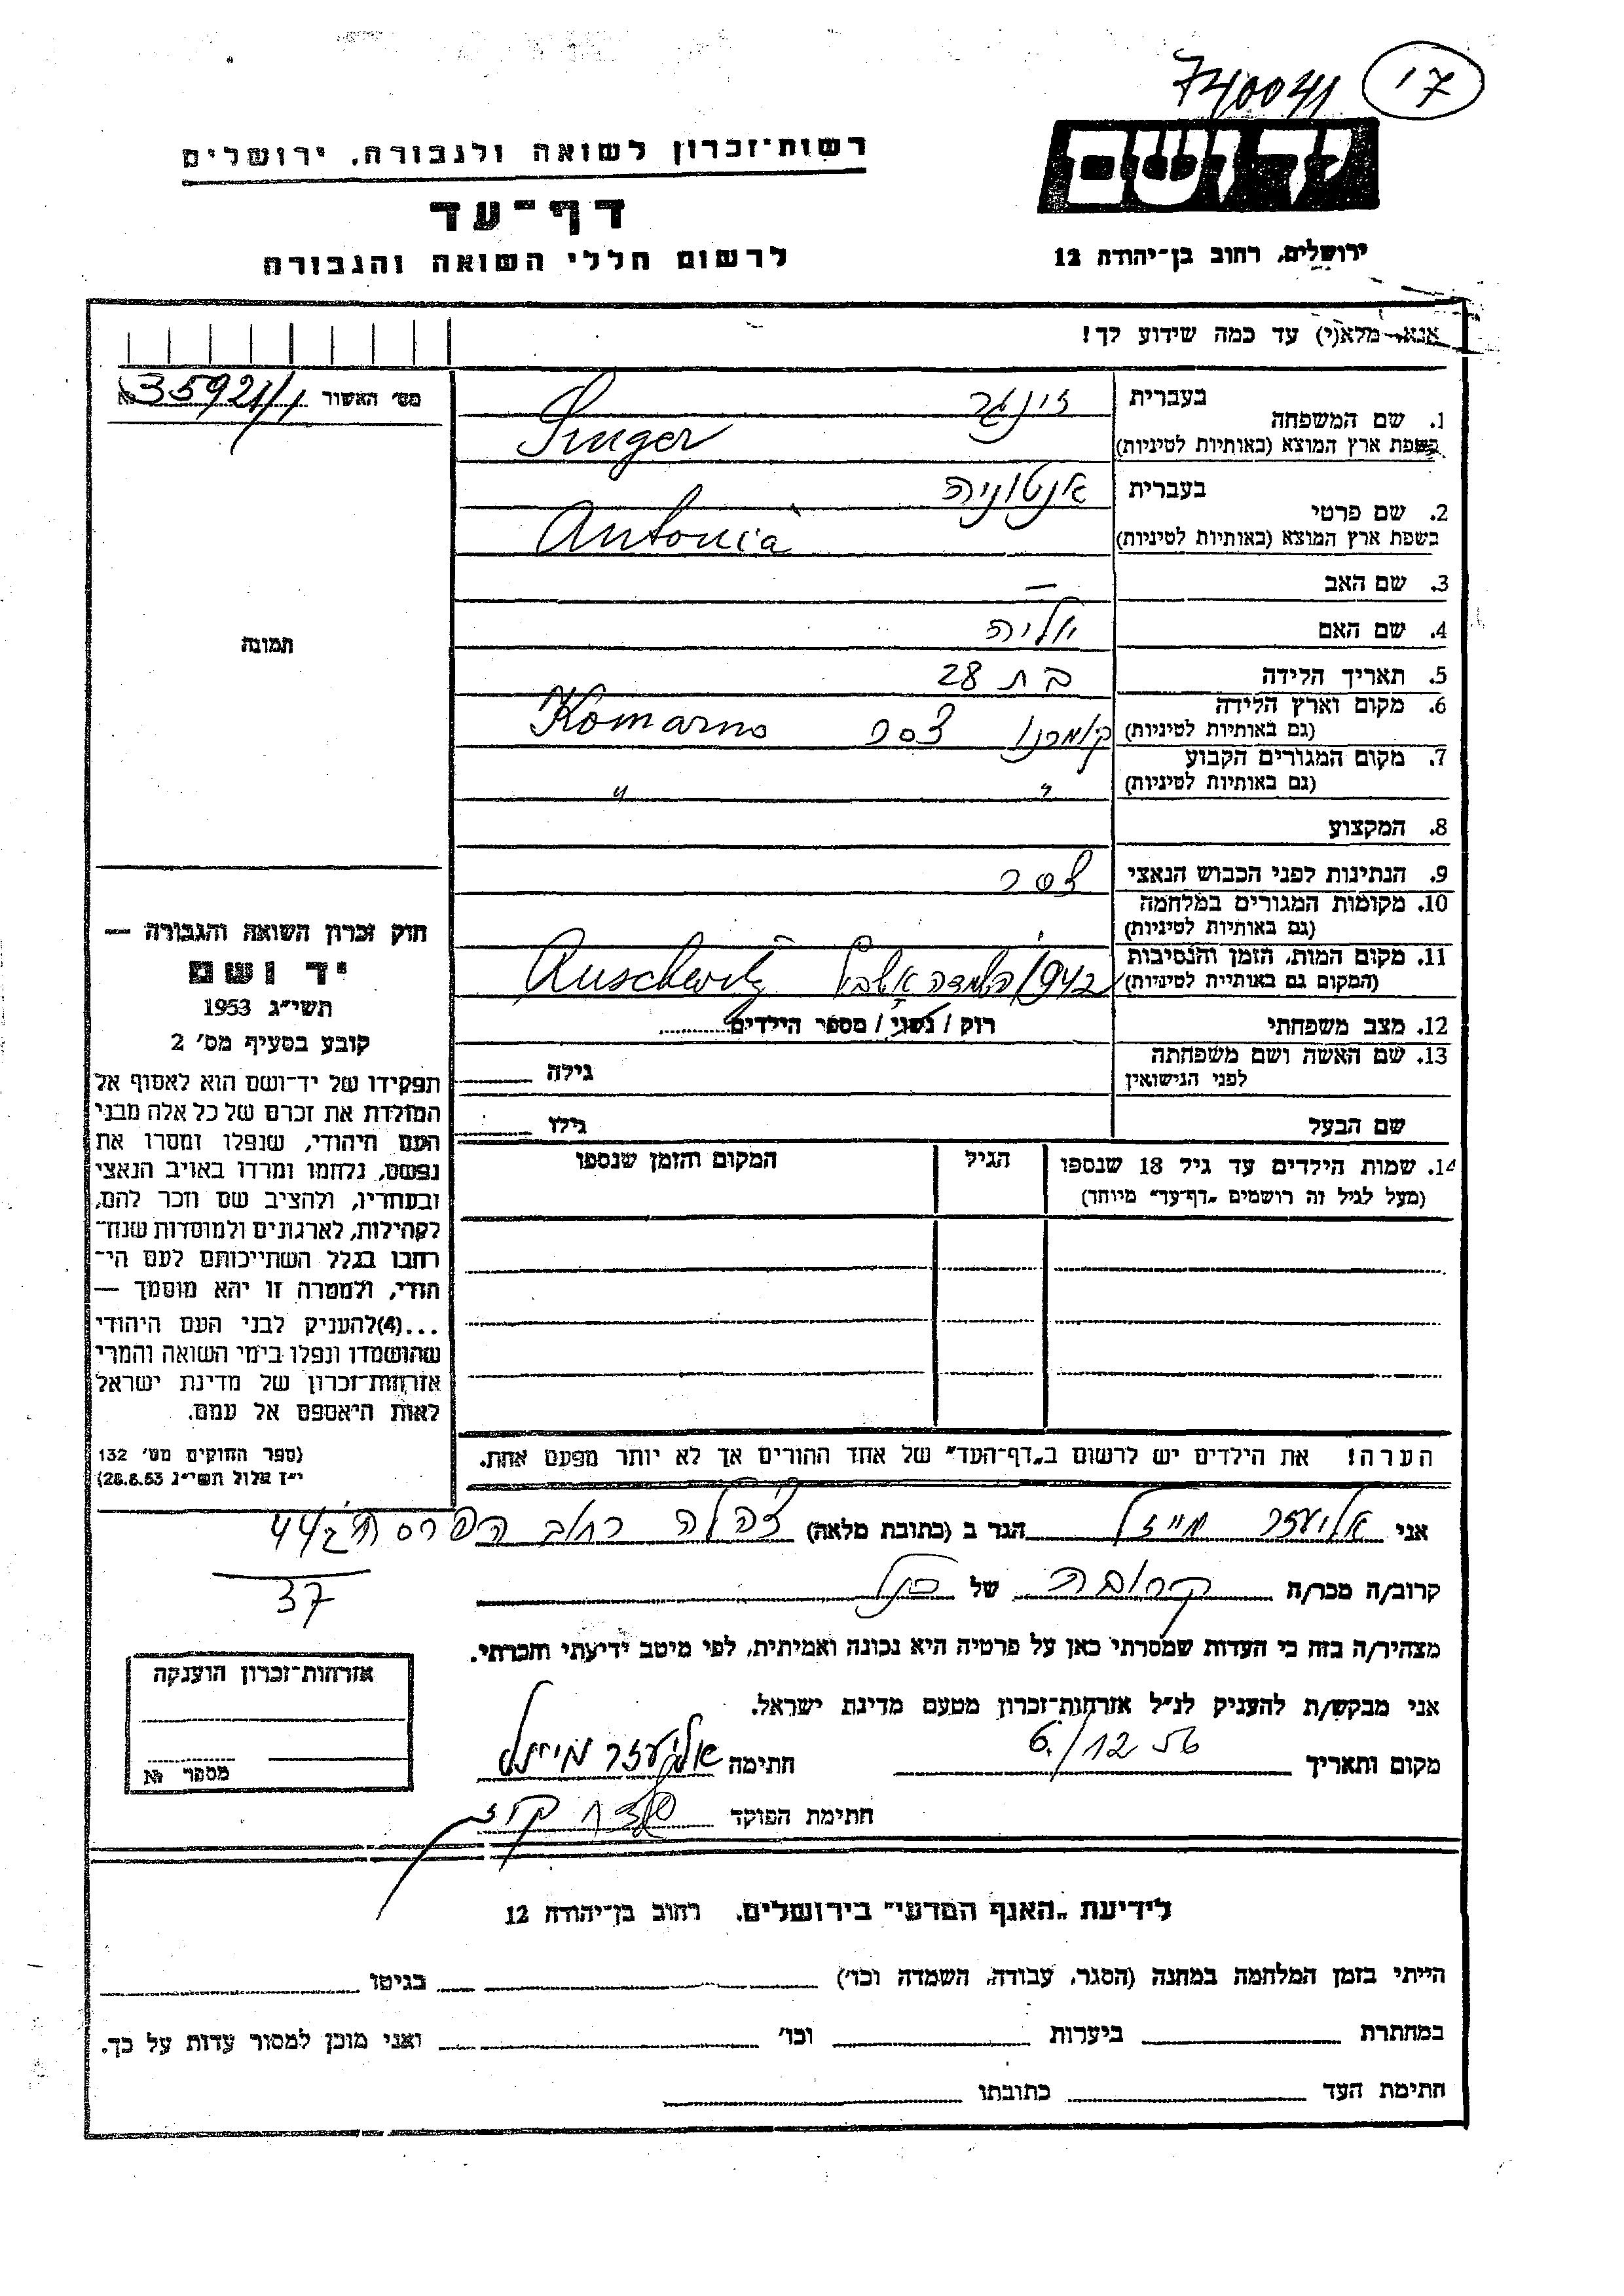 740041 17
יד ושם
רשות־זכרון לשואה ולגבורה, ירושלים
דף־עד
לרשום חללי השואה והגבורה
ירושלים, רחוב בן־יהודה 12
אנא מלא(י) עד כמה שידוע לך!
מס' האשור 35921/1 №
1. שם המשפחה
בעברית זינגר
בשפת ארץ המוצא (באותיות לטיניות) Singer
2. שם פרטי
בעברית אנטוניה
בשפת ארץ המוצא (באותיות לטיניות) Antonia
3. שם האב —
4. שם האם יוליה
5. תאריך הלידה בת 28
6. מקום וארץ הלידה
(גם באותיות לטיניות) קומרנו צ'סר Komarno
7. מקום המגורים הקבוע
(גם באותיות לטיניות) " "
8. המקצוע
9. הנתינות לפני הכבוש הנאצי צ'סר
10. מקומות המגורים במלחמה
(גם באותיות לטיניות)
11. מקום המות, הזמן והנסיבות
(המקום גם באותיות לטיניות) 1942 Auschwitz
12. מצב משפחתי רוק / נשוי / מספר הילדים
13. שם האשה ושם משפחתה
לפני הנישואין גילה
שם הבעל גילו
14. שמות הילדים עד גיל 18 שנספו הגיל המקום והזמן שנספו
(מעל לגיל זה רושמים "דף־עד" מיוחד)
הערה! את הילדים יש לרשום ב"דף־העד" של אחד ההורים אך לא יותר מפעם אחת.
תמונה
חוק זכרון השואה והגבורה —
יד ושם
תשי"ג 1953
קובע בסעיף מס' 2
תפקידו של יד־ושם הוא לאסוף אל
המולדת את זכרם של כל אלה מבני
העם היהודי, שנפלו ומסרו את
נפשם, נלחמו ומרדו באויב הנאצי
ובעוזריו, ולהציב שם וזכר להם,
לקהילות, לארגונים ולמוסדות שנח־
רבו בגלל השתייכותם לעם הי־
הודי, ולמטרה זו יהא מוסמך —
...(4)להעניק לבני העם היהודי
שהושמדו ונפלו בימי השואה והמרי
אזרחות־זכרון של מדינת ישראל
לאות היאספם אל עמם.
(ספר החוקים מס' 132
י"ז אלול תשי"ג 28.8.53)
אני אליעזר הגר ב (כתובת מלאה) צהלה רחוב 442
37
קרוב/ה מכר/ה קרובה של
מצהיר/ה בזה כי העדות שמסרתי כאן על פרטיה היא נכונה ואמיתית, לפי מיטב ידיעתי והכרתי.
אני מבקש/ת להעניק לנ"ל אזרחות־זכרון מטעם מדינת ישראל.
מקום ותאריך 6/12 56 חתימה אליעזר
חתימת הפוקד
אזרחות־זכרון הוענקה
מספר №
לידיעת "האגף המדעי" בירושלים, רחוב בן־יהודה 12
הייתי בזמן המלחמה במחנה (הסגר, עבודה, השמדה וכו') בגיטו
במחתרת ביערות וכו' ואני מוכן למסור עדות על כך.
חתימת העד כתובתו